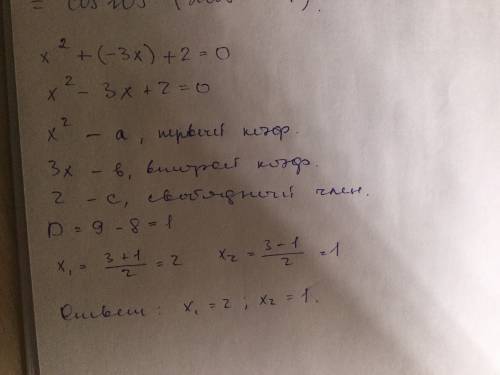 x² + (-3x) + 2 = 0
x² - 3x + 2 = 0
x² - a, первый коэф.
3x - в, второй коэф.
2 - c, свободный член.
D = 9 - 8 = 1
x₁ = (3+1)/2 = 2 x₂ = (3-1)/2 = 1
Ответ: x₁ = 2; x₂ = 1.